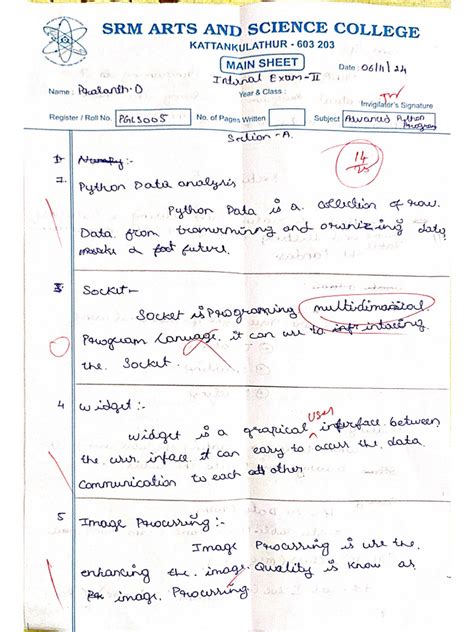 SRM ARTS AND SCIENCE COLLEGE
KATTANKULATHUR - 603 203
MAIN SHEET
Date: 06/11/24
Internal Exam-II
Name: Prasanth.D
Year & Class:
Invigilator's Signature
Register / Roll No. PGL3005
No. of Pages Written
Subject Advanced Python Program
Section -A.
14
25
Python Data analysis
Python Data is a collection of raw
Data from and data
future.
3 Socket-
Socket is Programing multidimasional
Program it can use to
the Socket.
4 Widget:-
user
Widget is a grapical interface between
the user inface it can easy to access the data
Communication to each other
5 Image Processing:-
Image Processing is use the
enhancing the image Quality is know as
image Processing.